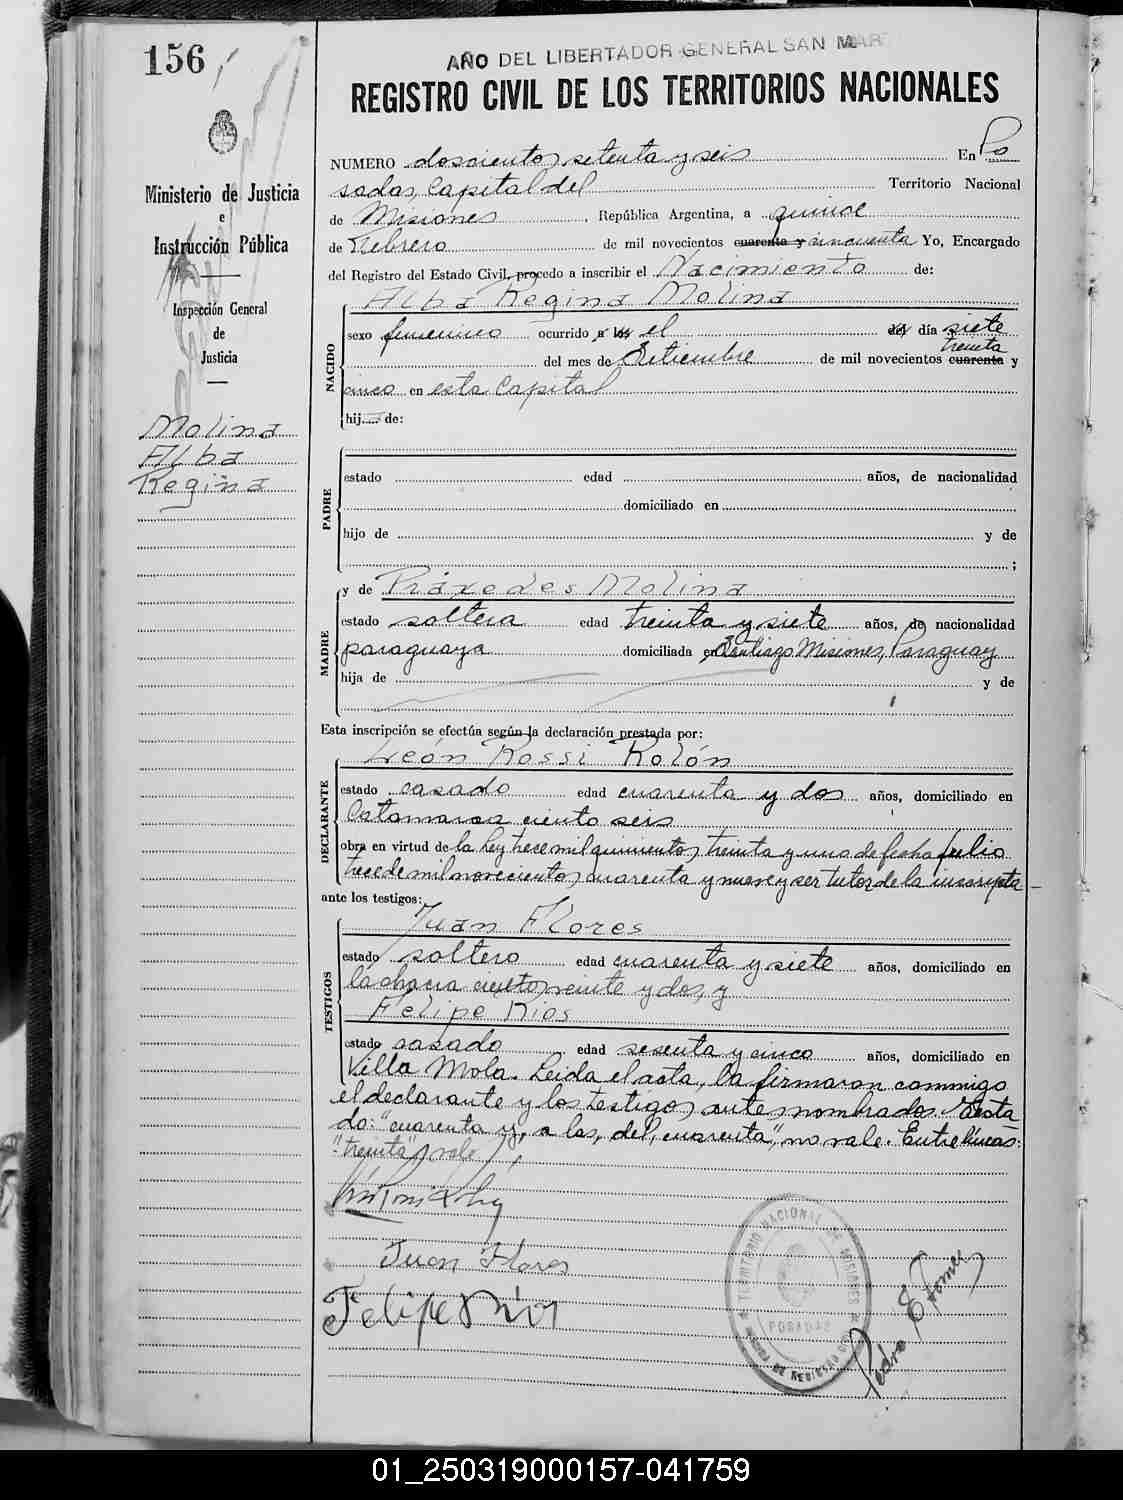 156
AÑO DEL LIBERTADOR GENERAL SAN MAR
REGISTRO CIVIL DE LOS TERRITORIOS NACIONALES
Ministerio de Justicia
e
Instrucción Pública
Inspección General
de
Justicia
Molina
Alba
Regina
NUMERO doscientos setenta y seis En Po
sadas, Capital del Territorio Nacional
de Misiones, República Argentina, a quince
de Febrero de mil novecientos cuarenta y cincuenta Yo, Encargado
del Registro del Estado Civil, procedo a inscribir el Nacimiento de:
Alba Regina Molina
NACIDO
sexo femenino ocurrido a las el del día siete
treinta
del mes de Setiembre de mil novecientos cuarenta y
cinco en esta Capital
hij de:
PADRE
estado edad años, de nacionalidad
domiciliado en
hijo de y de
;
MADRE
y de Práxedes Molina
estado soltera edad treinta y siete años, de nacionalidad
paraguaya domiciliada en Santiago Misiones, Paraguay
hija de y de
Esta inscripción se efectúa según la declaración prestada por:
León Rossi Rolón
DECLARANTE
estado casado edad cuarenta y dos años, domiciliado en
Catamarca ciento seis
obra en virtud de la Ley trece mil quinientos treinta y uno de fecha julio
trece de mil novecientos cuarenta y nueve y ser tutor de la inscripta
ante los testigos:
Juan Flores
TESTIGOS
estado soltero edad cuarenta y siete años, domiciliado en
la chacra ciento veinte y dos, y
Felipe Rios
estado casado edad sesenta y cinco años, domiciliado en
Villa Mola. Leida el acta, la firmaron conmigo
el declarante y los testigos antes nombrados. Testa
do: "cuarenta y, a las, del, cuarenta", no vale. Entre lineas:
"treinta", vale
Juan Flores
Felipe Rios
TERRITORIO NACIONAL DE MISIONES
POSADAS
Pedro E
01_250319000157-041759